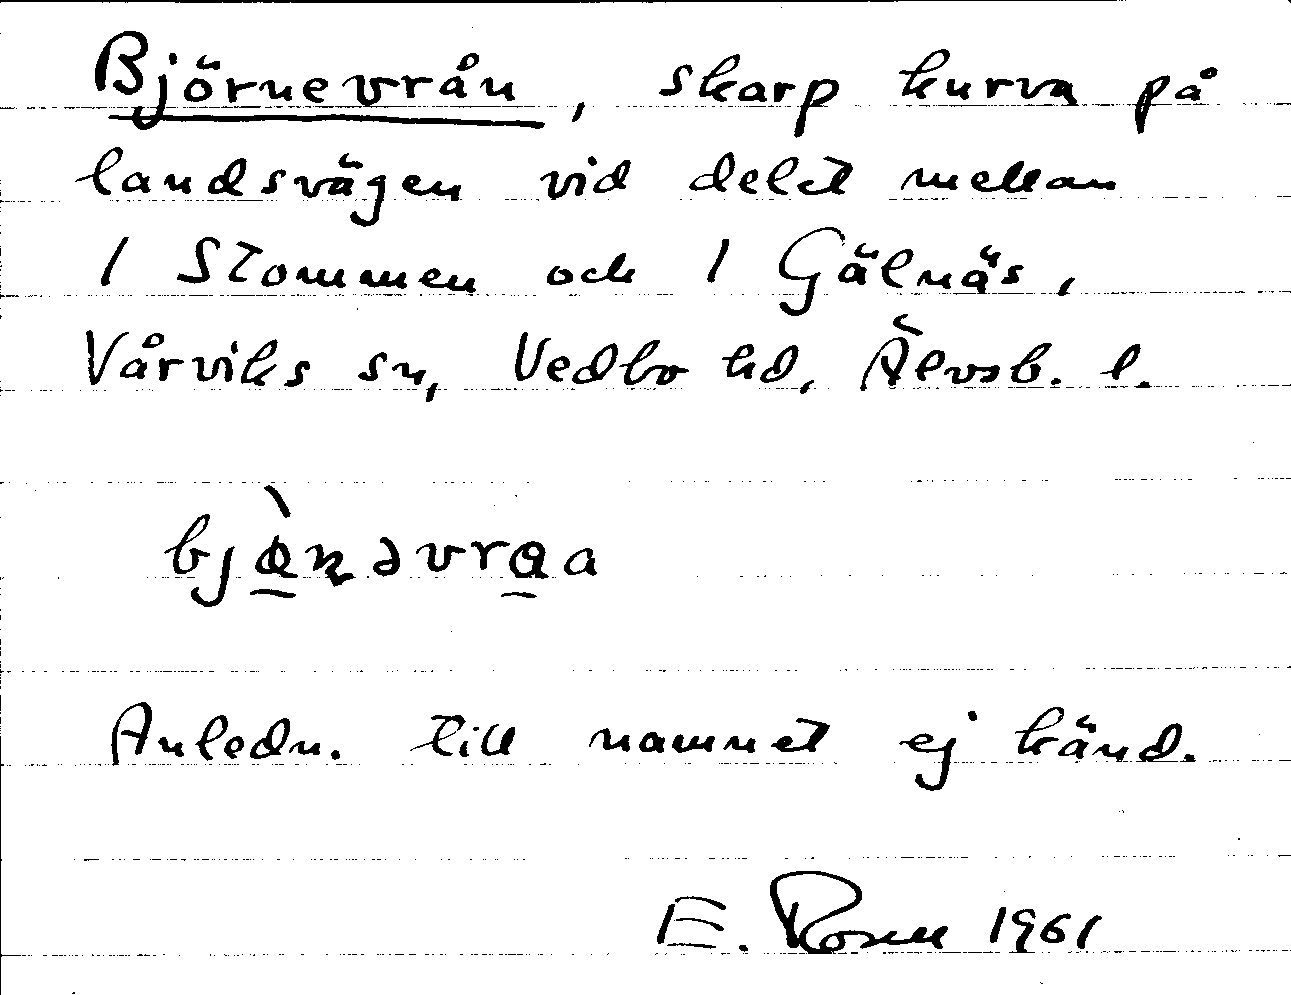 Björnevrån, skarp kurva på
landsvägen vid delet mellan
1 Stommen och 1 Gälnäs,
Vårviks sn, Vedbo hd, Älvsb. l.
Anledn. till namnet ej känd.
E. Rosen 1961